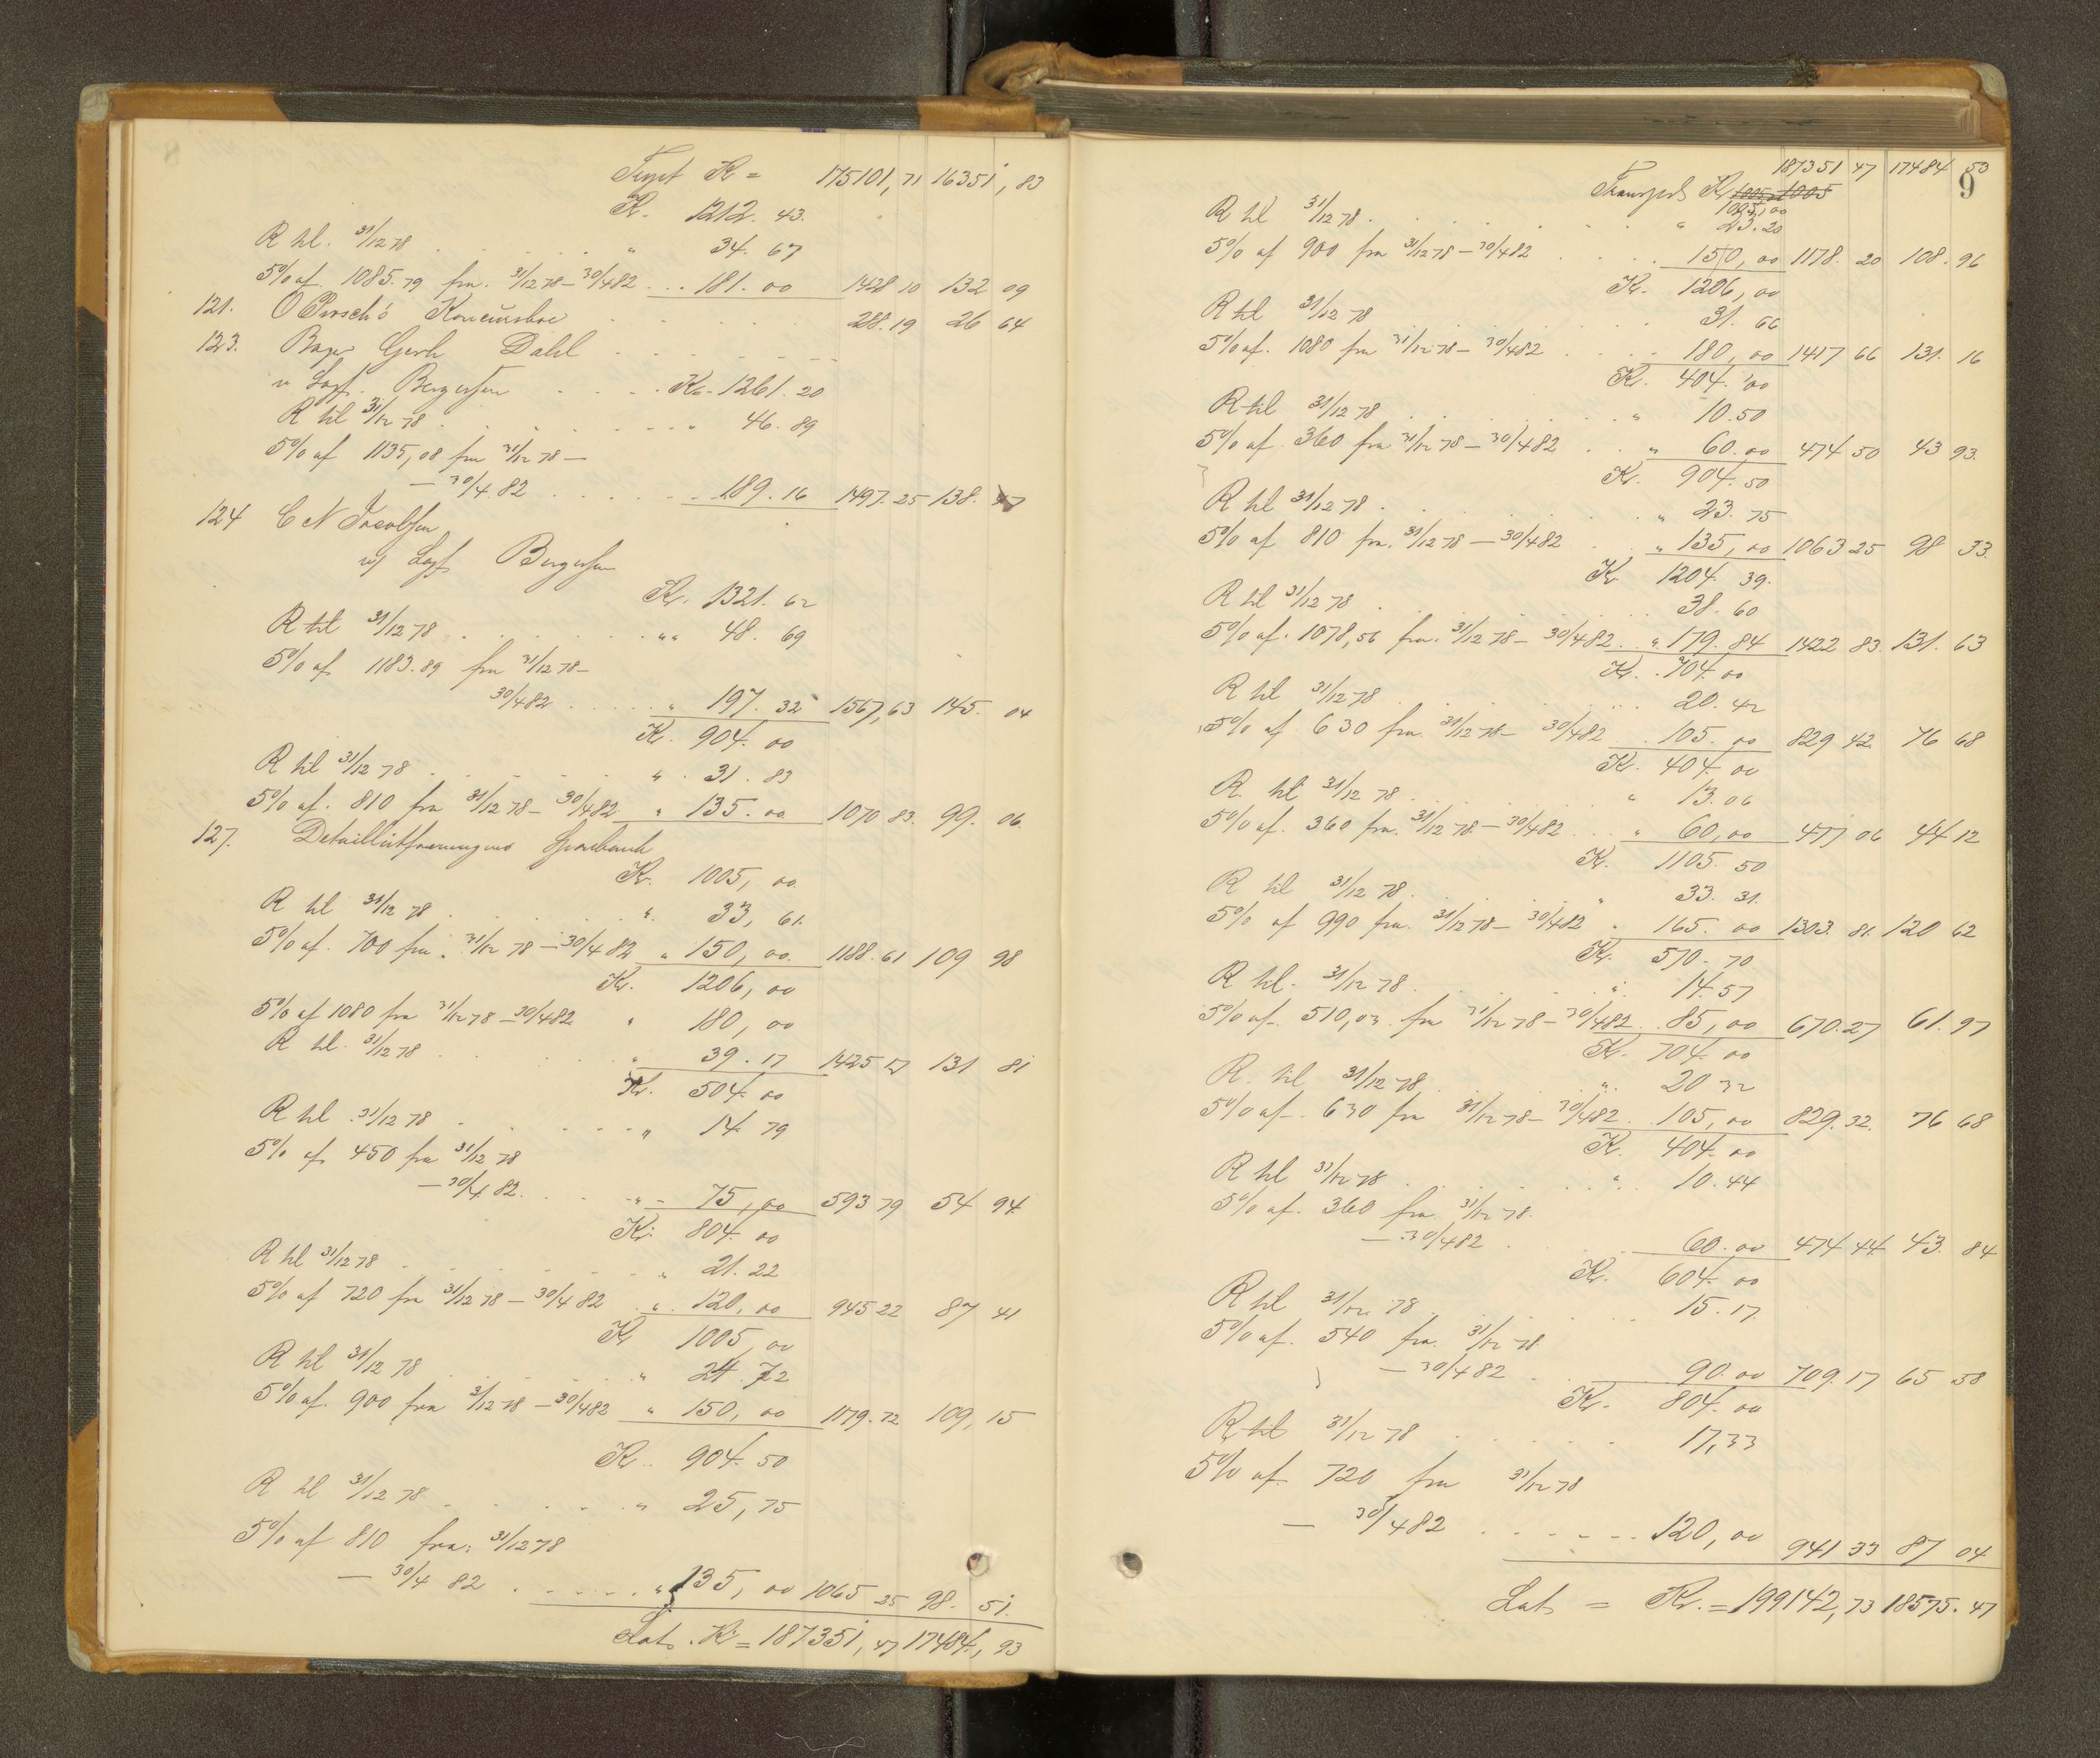 Trspt Kr = 175101,71 16351,83
Kr. 1212. 43.
R til. 31/12 78 . . . " 34. 67
5% af. 1085.79 fra. 31/12 78 - 30/4 82 . . . 181. 00 1428 10 132 09
121. O Pirsch's Koncursbo . . . 288.19 26 64
123. Bager Gerh Dahl . . .
v Sagf. Bergersen . . . Kr. 1261. 20
R til 31/12 78 . . . " 46. 89
5% af 1135,08 fra 31/12 78 -
- 30/4 82 . . . 189. 16 1497. 25 138.
124 C N Jacobsen
v/ Sagf. Bergersen
Kr. 1321. 62
R til 31/12 78 . . . " " 48. 69
5% af 1183.89 fra 31/12 78 -
30/4 82 . . . " 197. 32 1567,63 145. 04
Kr. 904. 00
R til 31/12 78 . . . " 31. 83
5% af. 810 fra 31/12 78 - 30/4 82 " 135. 00 1070 83. 99. 06.
127. Detaillistforeningens Sparebank
Kr. 1005, 00.
R til 31/12 78 . . . " 33, 61.
5% af. 700 fra. 31/12 78 - 30/4 82 " 150, 00. 1188. 61 109 98
Kr. 1206, 00
5% af 1080 fra 31/12 78 - 30/4 82 " 180, 00
R til. 31/12 78 . . . " 39. 17 1425 17 131 81
Kr. 504. 00
R til. 31/12 78 . . . " 14. 79
5% af 450 fra 31/12 78
- 30/4 82. . . . " - 75, 00 593 79 54 94.
Kr. 804. 00
R til 31/12 78 . . . " 21. 22
5% af 720 fra 31/12 78 - 30/4 82 . " 120, 00 945 22 87 41
Kr 1005, 00
R til 31/12 78 . . . " 24. 72
5% af. 900 fra 31/12 78 - 30/4 82 " 150, 00 1179. 72 109, 15
Kr. 904. 50
R til 31/12 78 . . . " 25, 75
5% af 810 fra. 31/12 78
- 30/4 82 . . . " 135, 00 1065 25 98. 51.
Lats. Kr = 187351, 47 17484, 93
9
187351 47 17484 53
Transport Kr 1005 1005
1005,00
R til 31/12 78 . . . " 23. 20
5% af 900 fra 31/12 78 - 30/4 82 . . . 150, 00 1178. 20 108. 96
Kr. 1206, 00
R til 31/12 78 . . . 31. 66
5% af. 1080 fra 31/12 78 - 30/4 82 . . . 180, 00 1417 66 131. 16
Kr. 404. 00
R til 31/12 78 . . . " 10.50
5% af. 360 fra 31/12 78 - 30/4 82 . . " 60. 00 474 50 43 93.
Kr. 904. 50
R til 31/12 78 . . . " 23. 75
5% af 810 fra. 31/12 78 - 30/4 82 " 135, 00 1063 25 98 33.
Kr. 1204. 39.
R til 31/12 78 . . . 38. 60
5% af. 1078,56 fra. 31/12 78 - 30/4 82 . . " 179. 84 1422 83. 131. 63
Kr. . 704. 00
R til 31/12 78 . . . 20. 42
5% af 630 fra. 31/12 78 - 30/4 82 . . 105. 00 829 42. 76 68
Kr. 404. 00
R. til 31/12 78 . . . " 13. 06
5% af. 360 fra. 31/12 78 - 30/4 82 . . " 60, 00 477 06 44 12
Kr. 1105. 50
R til 31/12 78 . . . " 33. 31.
5% af 990 fra. 31/12 78 - 30/4 82 " 165. 00 1303. 81. 120 62
Kr. 570. 70
R til. 31/12 78 . . . " 14. 57
5% af. 510,03. fra 31/12 78 - 30/4 82 . . 85, 00 670. 27 61. 97
Kr. 704. 00
R. til 31/12 78 . . . " 20 32
5% af. 630 fra 31/12 78 - 30/4 82 . . 105, 00 829. 32. 76 68
Kr. 404. 00
R til 31/12 78 . . . " 10. 44
5% af. 360 fra 31/12 78.
- 30/4 82 . . . 60. 00 474 44. 43. 84
Kr. 604. 00
R til 31/12 78 . . . 15. 17.
5% af. 540 fra. 31/12 78
- 30/4 82 . . . 90. 00 709. 17 65 58
Kr. 804. 00
R til 31/12 78 . . . 17,33
5% af 720 fra 31/12 78
- 30/4 82 . . . 120, 00 941 33 87 04
Lats = Kr. = 199142, 73 18575. 47